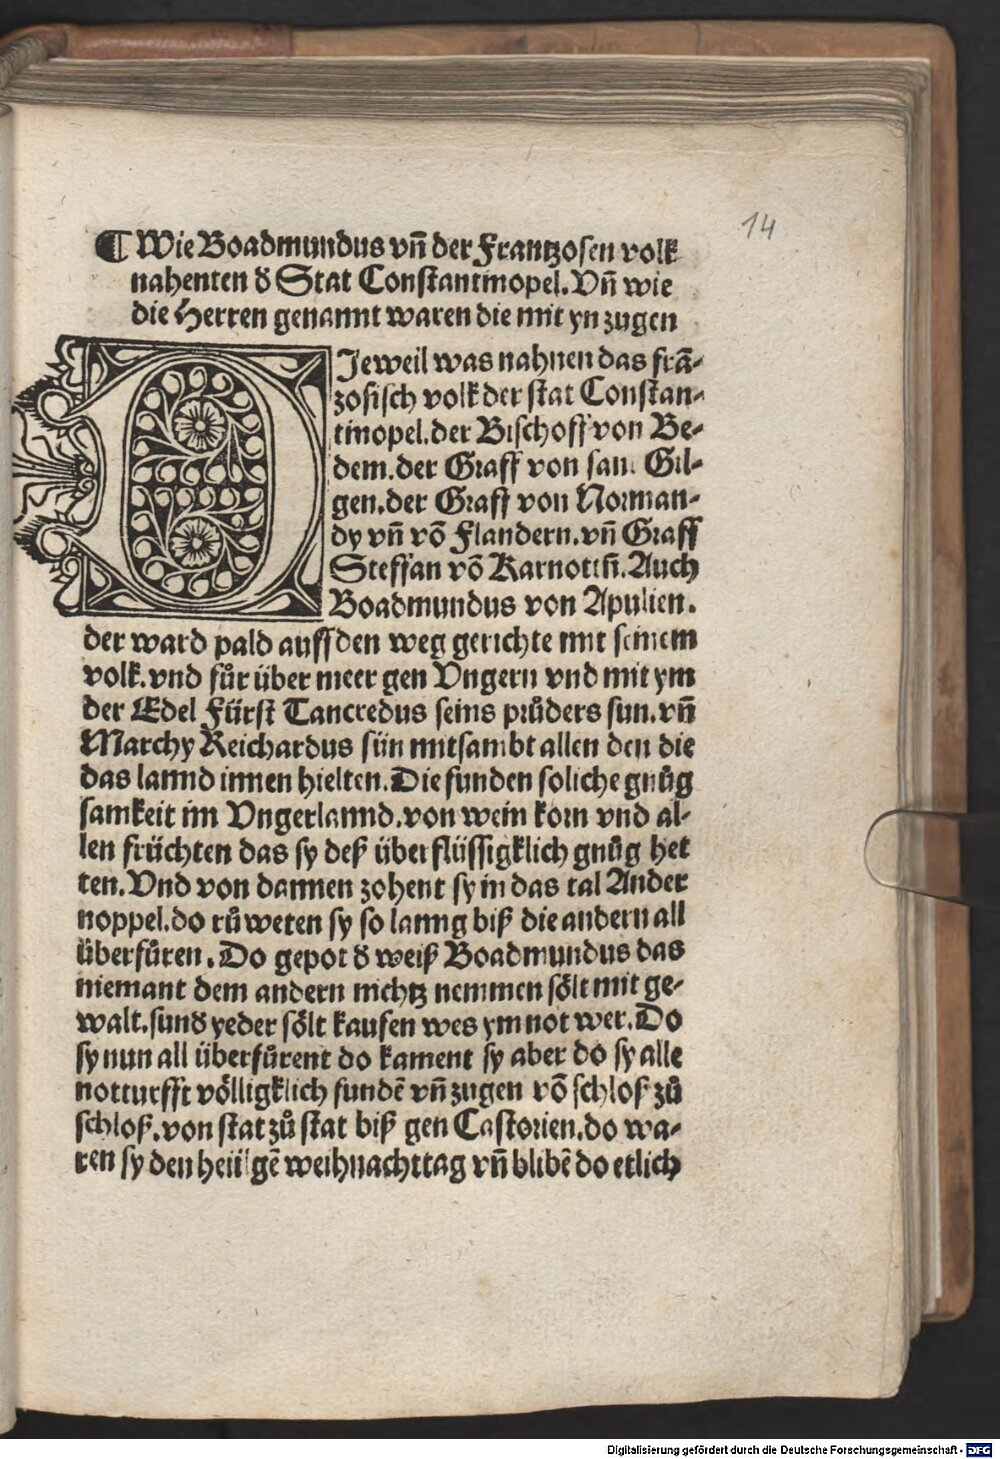 14
¶ Wie Boadmundus vn̄ der Frantzosen volk
nahenten d' Stat Constantinopel. Vn̄ wie
die Herren genannt waren die mit yn zugen
DIeweil was nahnen das frā-
zosisch volk der stat Constan-
tinopel. der Bischoff von Be-
dem. der Graff von sant Gil-
gen. der Graff von Norman-
dy vn̄ vō Flandern. vn̄ Graff
Steffan vō Karnottn̄. Auch
Boadmundus von Apulien.
der ward pald auff den weg gerichte mit seinem
volk. vnd fůr über meer gen Vngern vnd mit ym
der Edel Fürst Tancredus seins průders sun. vn̄
Marchy Reichardus sün mitsambt allen den die
das lannd innen hielten. Die funden soliche gnůg
samkeit im Vngerlannd. von wein korn vnd al-
len früchten das sy deß überflüssigklich gnůg het
ten. Vnd von dannen zohent sy in das tal Ander
noppel. do růweten sy so lanng biß die andern all
überfůren. Do gepot d' weiß Boadmundus das
niemant dem andern nichtz nemmen sölt mit ge-
walt. sund' yeder sölt kaufen wes ym not wer. Do
sy nun all überfůrent do kament sy aber do sy alle
notturfft völligklich fundē vn̄ zugen vō schloß zů
schloß. von stat zů stat biß gen Castorien. do wa-
ren sy den heiligē weihnachttag vn̄ blibē do etlich
Digitalisierung gefördert durch die Deutsche Forschungsgemeinschaft - DFG